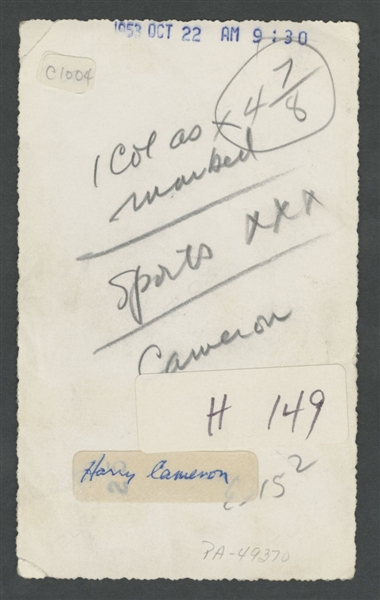 1953 OCT 22 AM 9:30
C1004
1 Col as x 4 7/8
marked
Sports xxx
Cameron
H 149
Harry Cameron
152
PA-49370